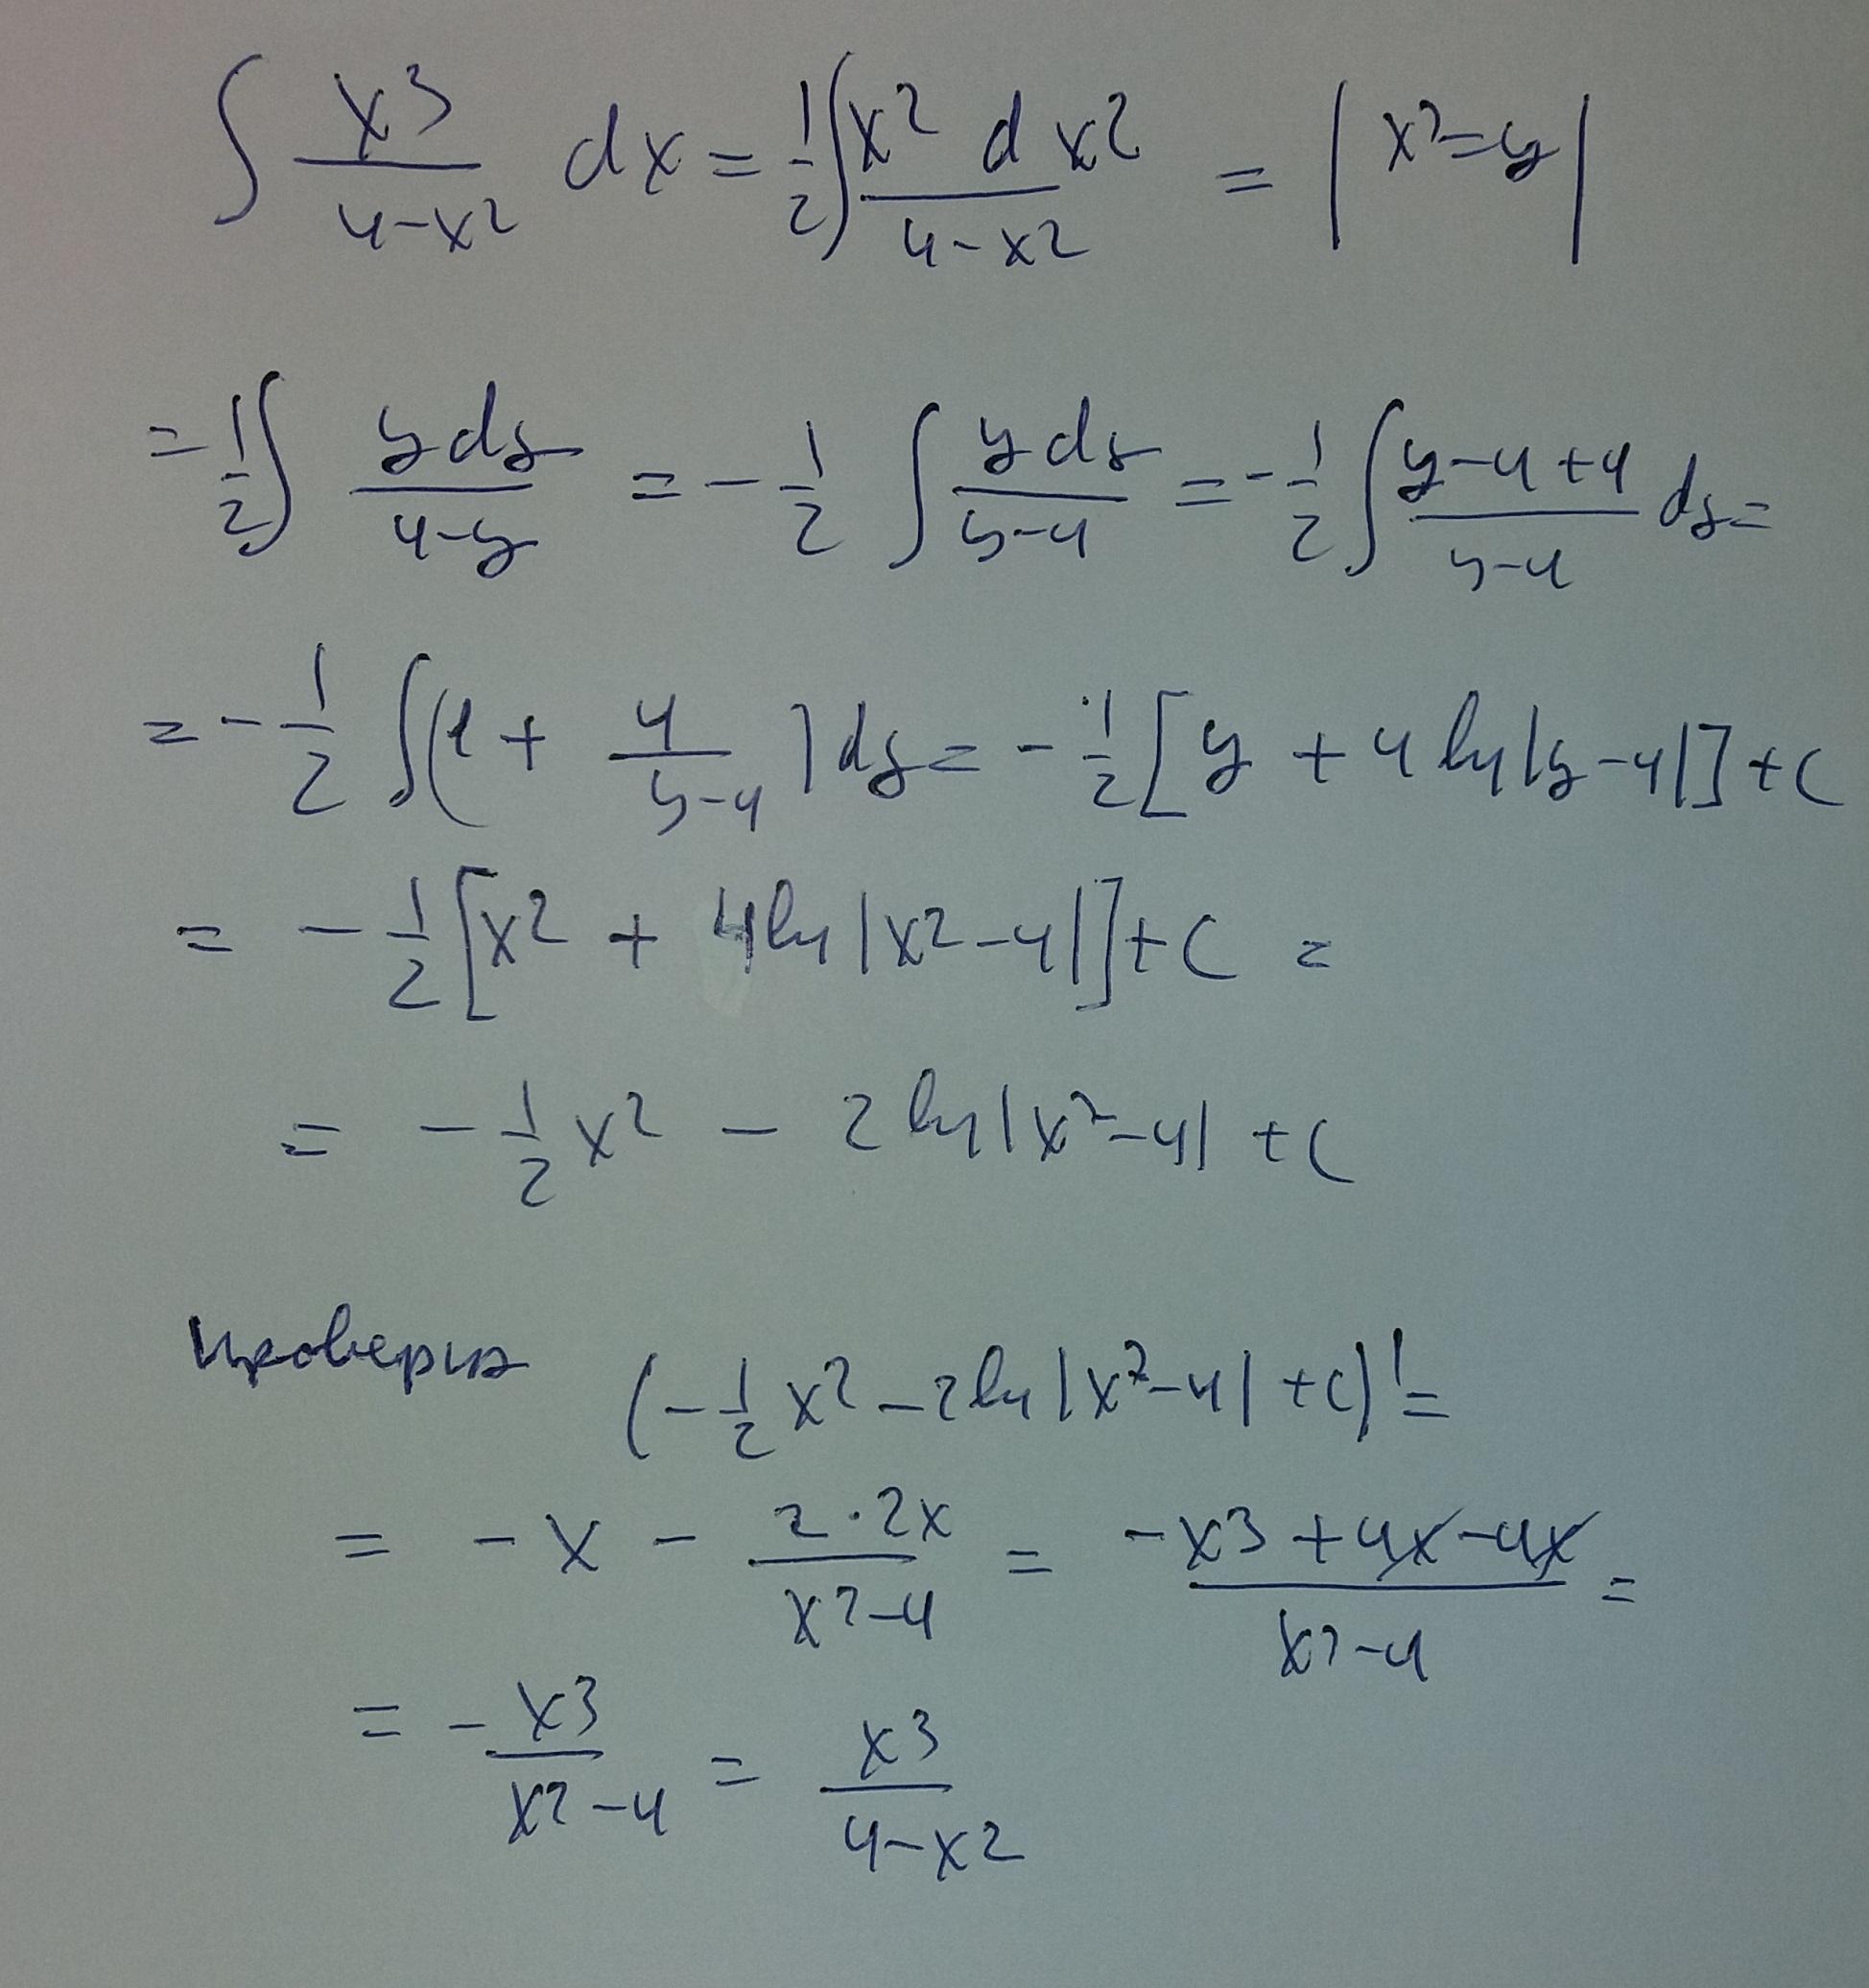 ∫ x³/(4-x²) dx = 1/2 ∫ x² dx²/(4-x²) = | x²=y |
= 1/2 ∫ ydy/(4-y) = - 1/2 ∫ ydy/(y-4) = - 1/2 ∫ (y-4+4)/(y-4) dy =
= - 1/2 ∫(1 + 4/(y-4)) dy = - 1/2 [y + 4 ln|y-4|] + C
= - 1/2 [x² + 4 ln|x²-4|] + C =
= - 1/2 x² - 2 ln|x²-4| + C
проверка (- 1/2 x² - 2 ln|x²-4| + C)' =
= - x - 2·2x/(x²-4) = (-x³ + 4x - 4x)/(x²-4) =
= - x³/(x²-4) = x³/(4-x²)